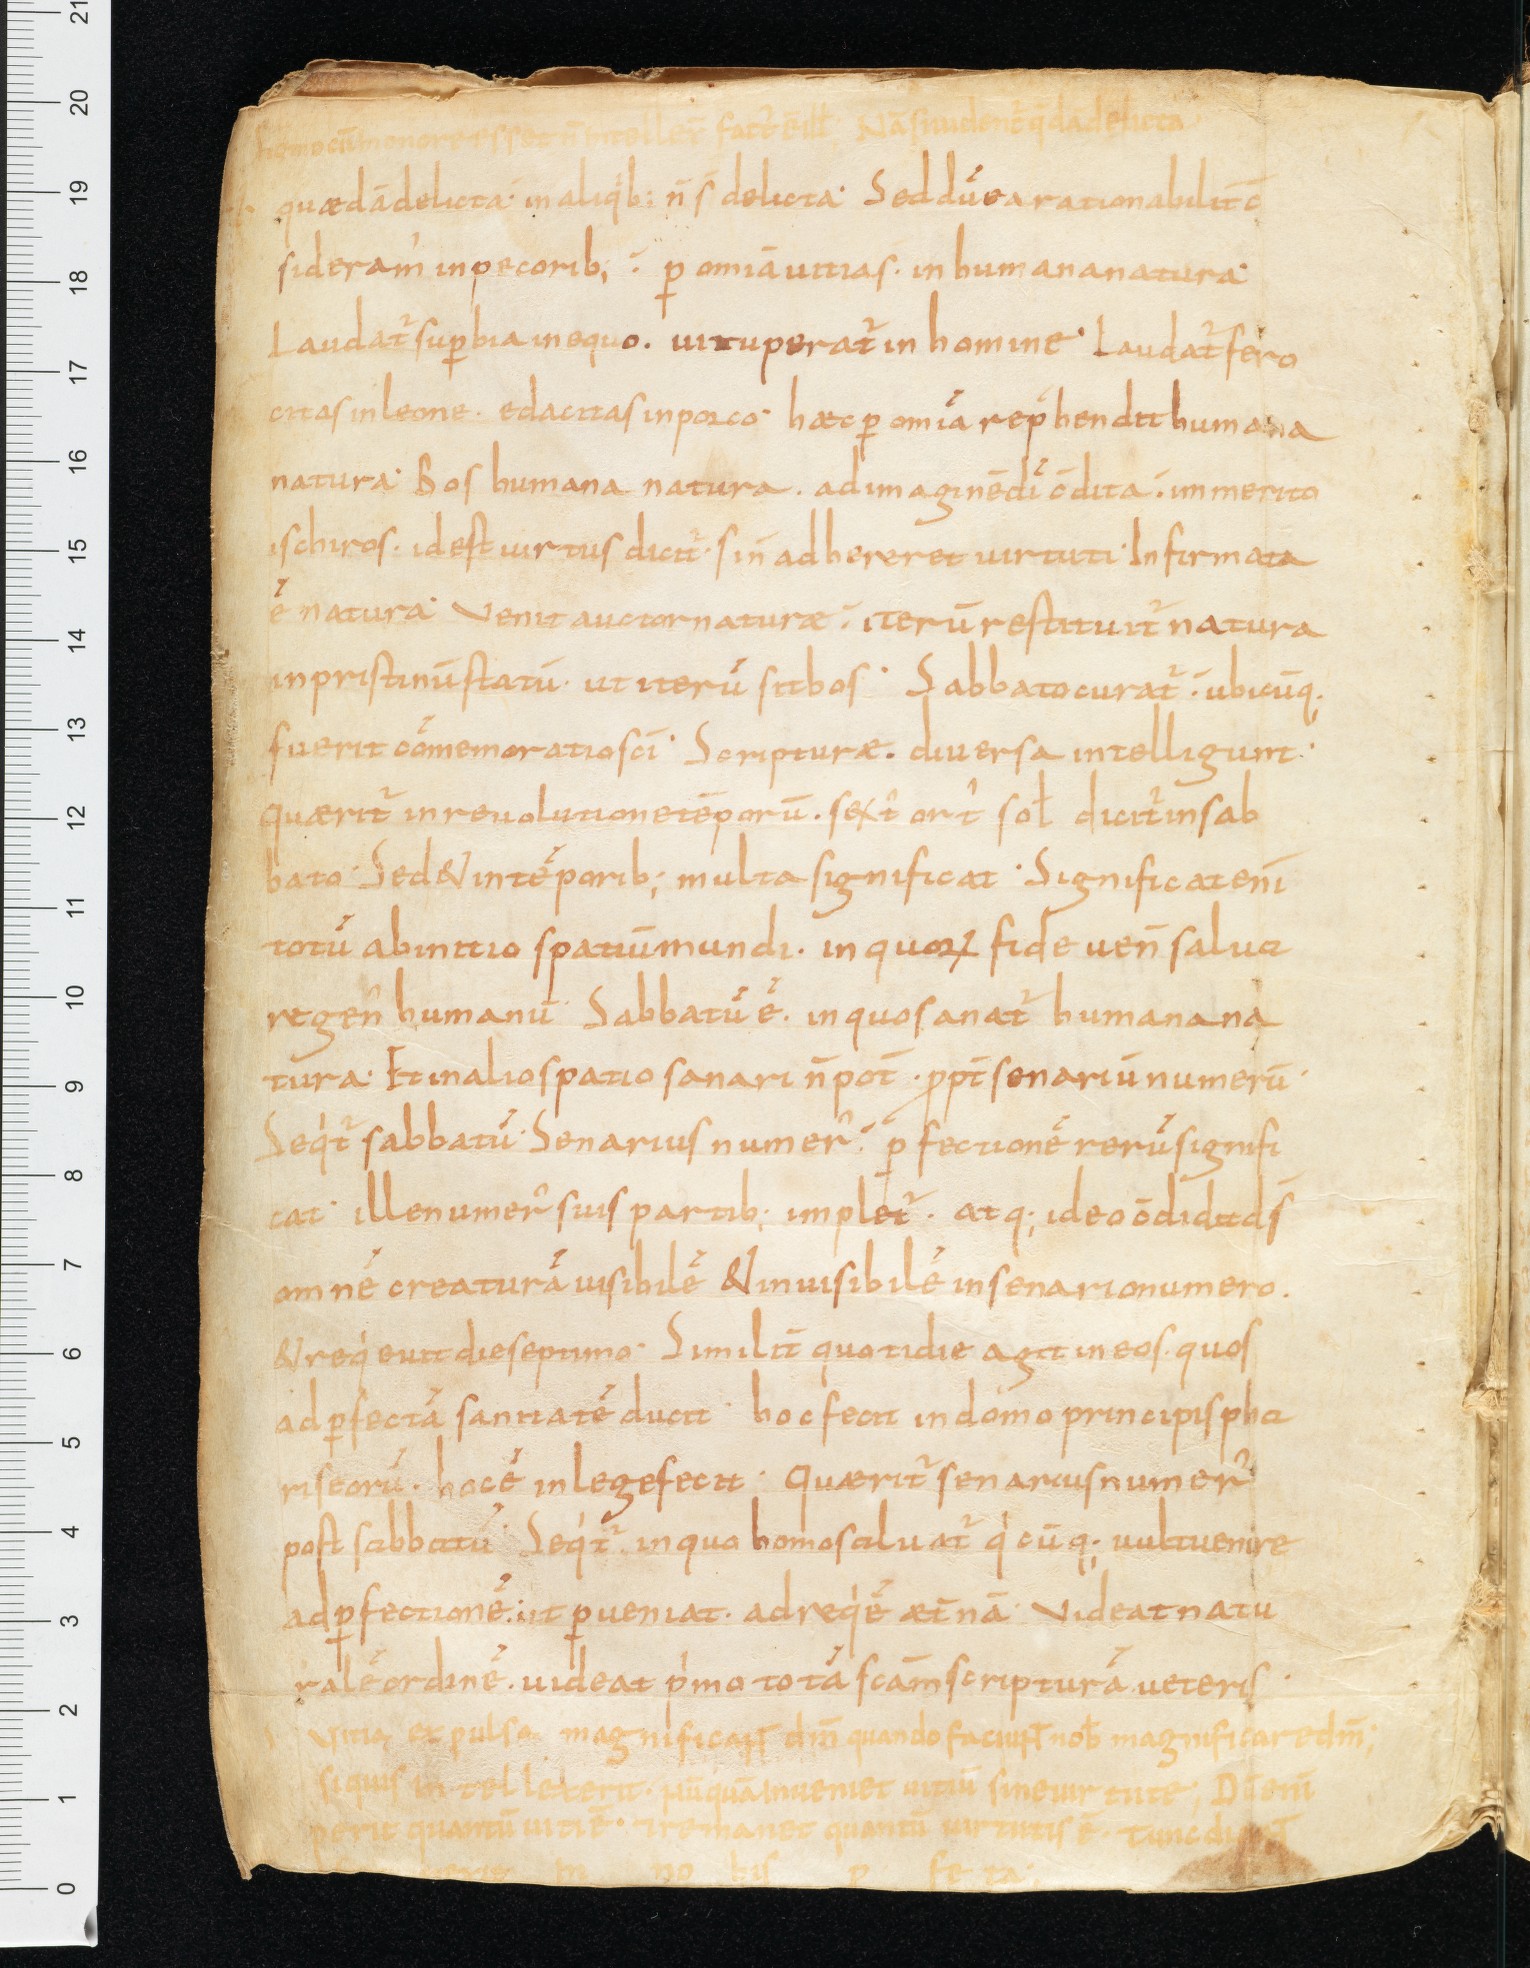 homo cū in honore esset n̄ intellex̄ fact̄ ē ill̄; Nā s̄ prudent̄ q̄dā delicta
quædā delicta· in aliq̇b; n̄ s̄ delicta· Sed dū ea rationabilit̄ c̄
sideram̓ in pecorib; ·̄ ꝑ omīa uitia s̄· in humana natura·
Laudat̄ suꝑbia in equo. uituperat̄ in homine· Laudat̄ fero
citas in leone. edacitas in porco· hæc ꝑ omīa rep̄hendit humana
natura· Bos humana natura. ad imaginē dī c̄dita· immerito
ischiros. id est uirtus dicit̄· si n̄ adhereret uirtuti· Infirmata
ē natura· Venit auctor naturæ·̄ iterū restituit̄ natura
in pristinū statū· ut iterū sit bos· Sabbato curat̄·̄ ubicūq;
fuerit cōmemoratio sc̄i· Scripturæ. diuersa intelligunt·
Quærit̄ in reuolutione tēporū. sext̓ ort̓ sol̄ dicit̄ in sab
bato· Sed & in tēporib; multa significat· Significat enī
totū ab initio spatiū mundi. in quoꝝ fide uen̄ salua
re gen̓ humanū· Sabbatū ē. in quo sanat̄ humana na
tura· Et in alio spatio sanari n̄ pot̄· ꝓpt̄ senariū numerū·
Seq̇t̄ sabbatū· Senarius numer̓·̄ ꝑfectionē rerū signifi
cat· ille numer̓ suis partib; implet̄. atq; ideo c̄didit ds̄
omnē creaturā uisibilē & inuisibilē in senario numero.
& req̇euit die septimo· Similit̄ quotidie agit in eos. quos
ad ꝑfectā sanitatē ducit· hoc fecit in domo principis pha
riseorū. hoc ē in lege fecit· Quærit̄ senarius numer̓
post sabbatū· Seq̇t̄ in quo homo saluat̄ q̇cūq; uult uenire
ad ꝑfectionē·̄ ut ꝑueniat. ad req̇ē æt̄nā· Videat natu
ralē ordinē. uideat p̓mo totā scām scripturā. ueteris·
Vitia expulsa magnificant dn̄m quando faciunt nob̄ magnificare dn̄m;
si quis intellexerit. nūquā inueniet uitiū sine uirtute; Dū enī
perit quantū uitii ē. remanet quantū uirtutis ē. tunc